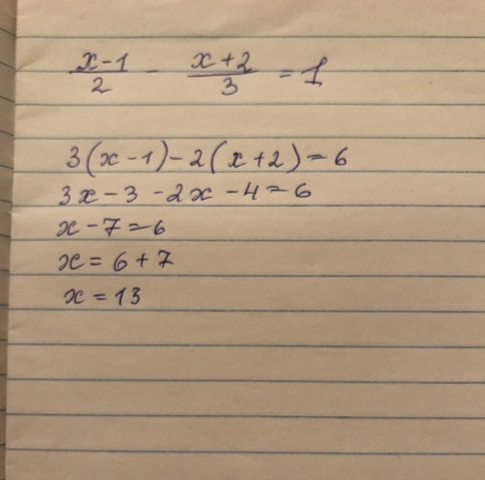 x-1/2 - x+2/3 = 1
3(x-1)-2(x+2)=6
3x-3-2x-4=6
x-7=6
x=6+7
x=13